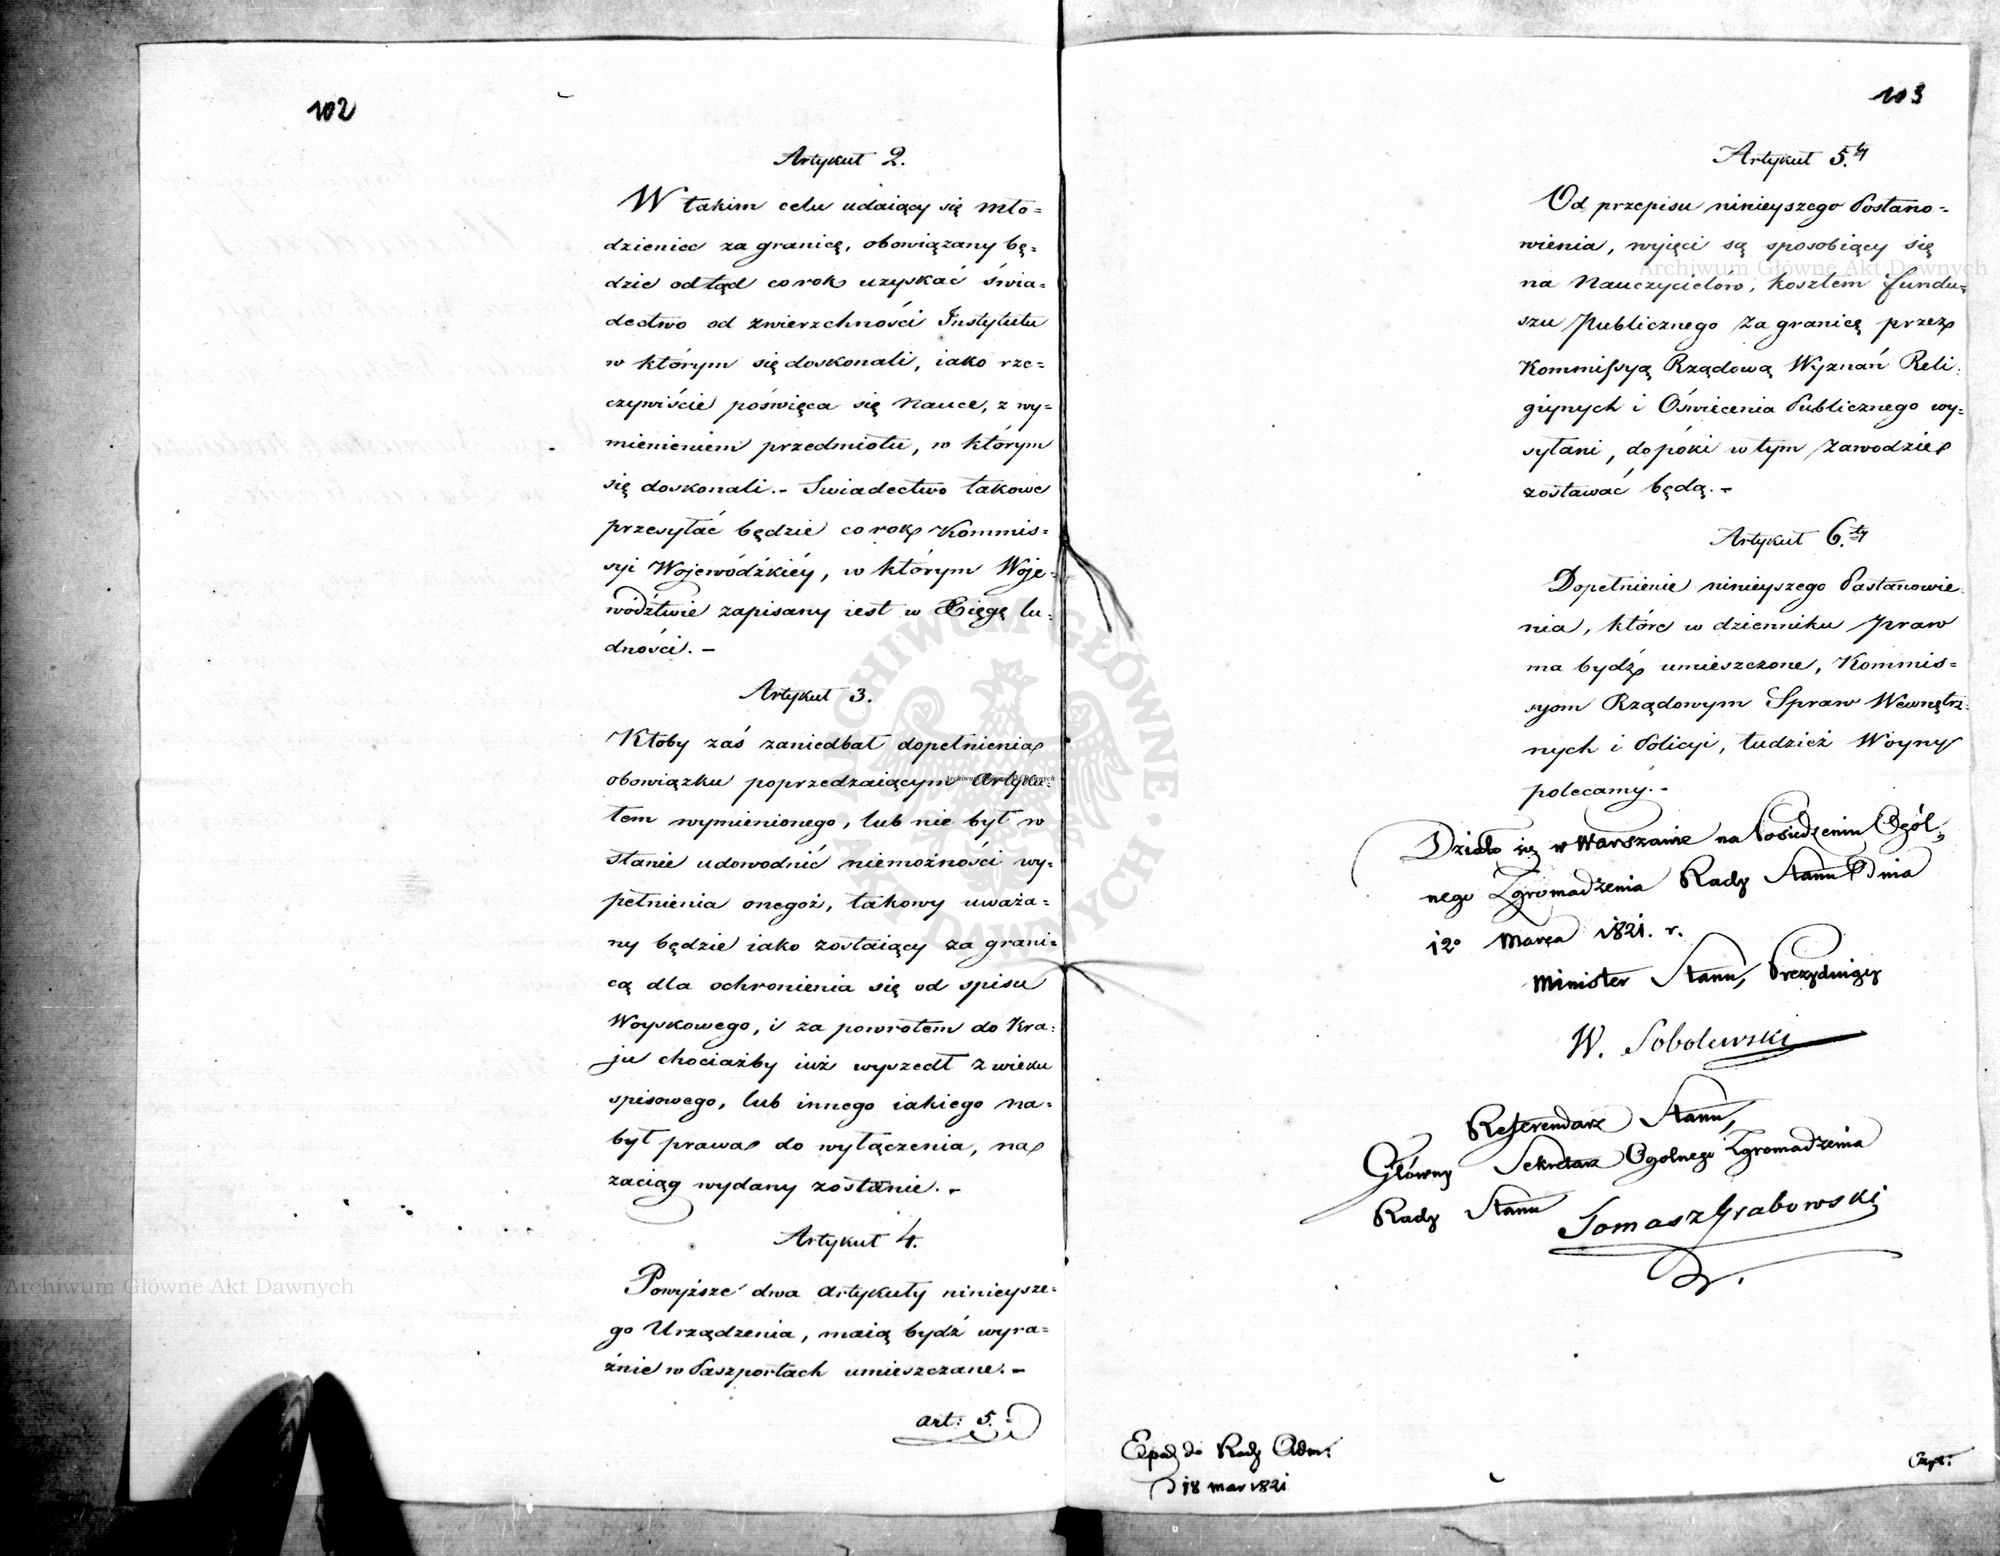 102
Artykuł 2.
W takim celu udaiący się mło=
dzieniec za granicę, obowiązany bę=
dzie odtąd corok uzyskać świa=
dectwo od zwierzchności Instytutu
w którym się doskonali, iako rze=
czywiście poświęca się Nauce, z wy=
mienieniem przedmiotu, w którym
się doskonali.- Swiadectwo takowe
przesyłać będzie corok Kommis=
syi Wojewódzkiéy, w którym Woje=
wództwie zapisany iest w Xięgę lu=
dności.-
Artykuł 3.
Ktoby zaś zaniedbał dopełnienia
obowiązku poprzedzaiącym Artyku=
łem wymienionego, lub nie był w
stanie udowodnić niemożności wy=
pełnienia onegoż, takowy uważa=
ny będzie iako zostaiący za grani=
cą dla ochronienia się od spisu
Woyskowego, i za powrotem do Kra=
ju chociażby iuż wyszedł z wieku
spisowego, lub innego iakiego na=
był prawa do wyłączenia, na
zaciąg wydany zostanie.-
Artykuł 4.
Powyższe dwa artykuły ninieysze=
go Urządzenia, maią bydź wyra=
źnie w Paszportach umieszczane.-
art: 5.
103
Artykuł 5.ty
Od przepisu ninieyszego Postano=
wienia, wyjęci są sposobiący się
na Nauczycielów, kosztem fundu=
szu Publicznego za granicę przez
Kommissyą Rządową Wyznań Reli=
giynych i Oświecenia Publicznego wy=
syłani, dopóki w tym zawodzie
zostawać będą.-
Artykuł 6.ty
Dopełnienie ninieyszego Postanowie=
nia, które w dzienniku praw
ma bydź umieszczone, Kommis=
syom Rządowym Spraw Wewnętrz=
nych i Policyi, tudzież Woyny
polecamy.-
Działo się w Warszawie na Posiedzeniu Ogól=
nego Zgromadzenia Rady Stanu Dnia
12o Marca 1821. r.
Minister Stanu, Prezyduiący
W. Sobolewski
Referendarz Stanu,
Główny Sekretarz Ogolnego Zgromadzenia
Rady Stanu Tomasz Grabowski
Exped do Rady Adm:
D 18 mar 1821
Archiwum Główne Akt Dawnych
Archiwum Główne Akt Dawnych
Archiwum Główne Akt Dawnych
ARCHIWUM GŁÓWNE AKT DAWNYCH